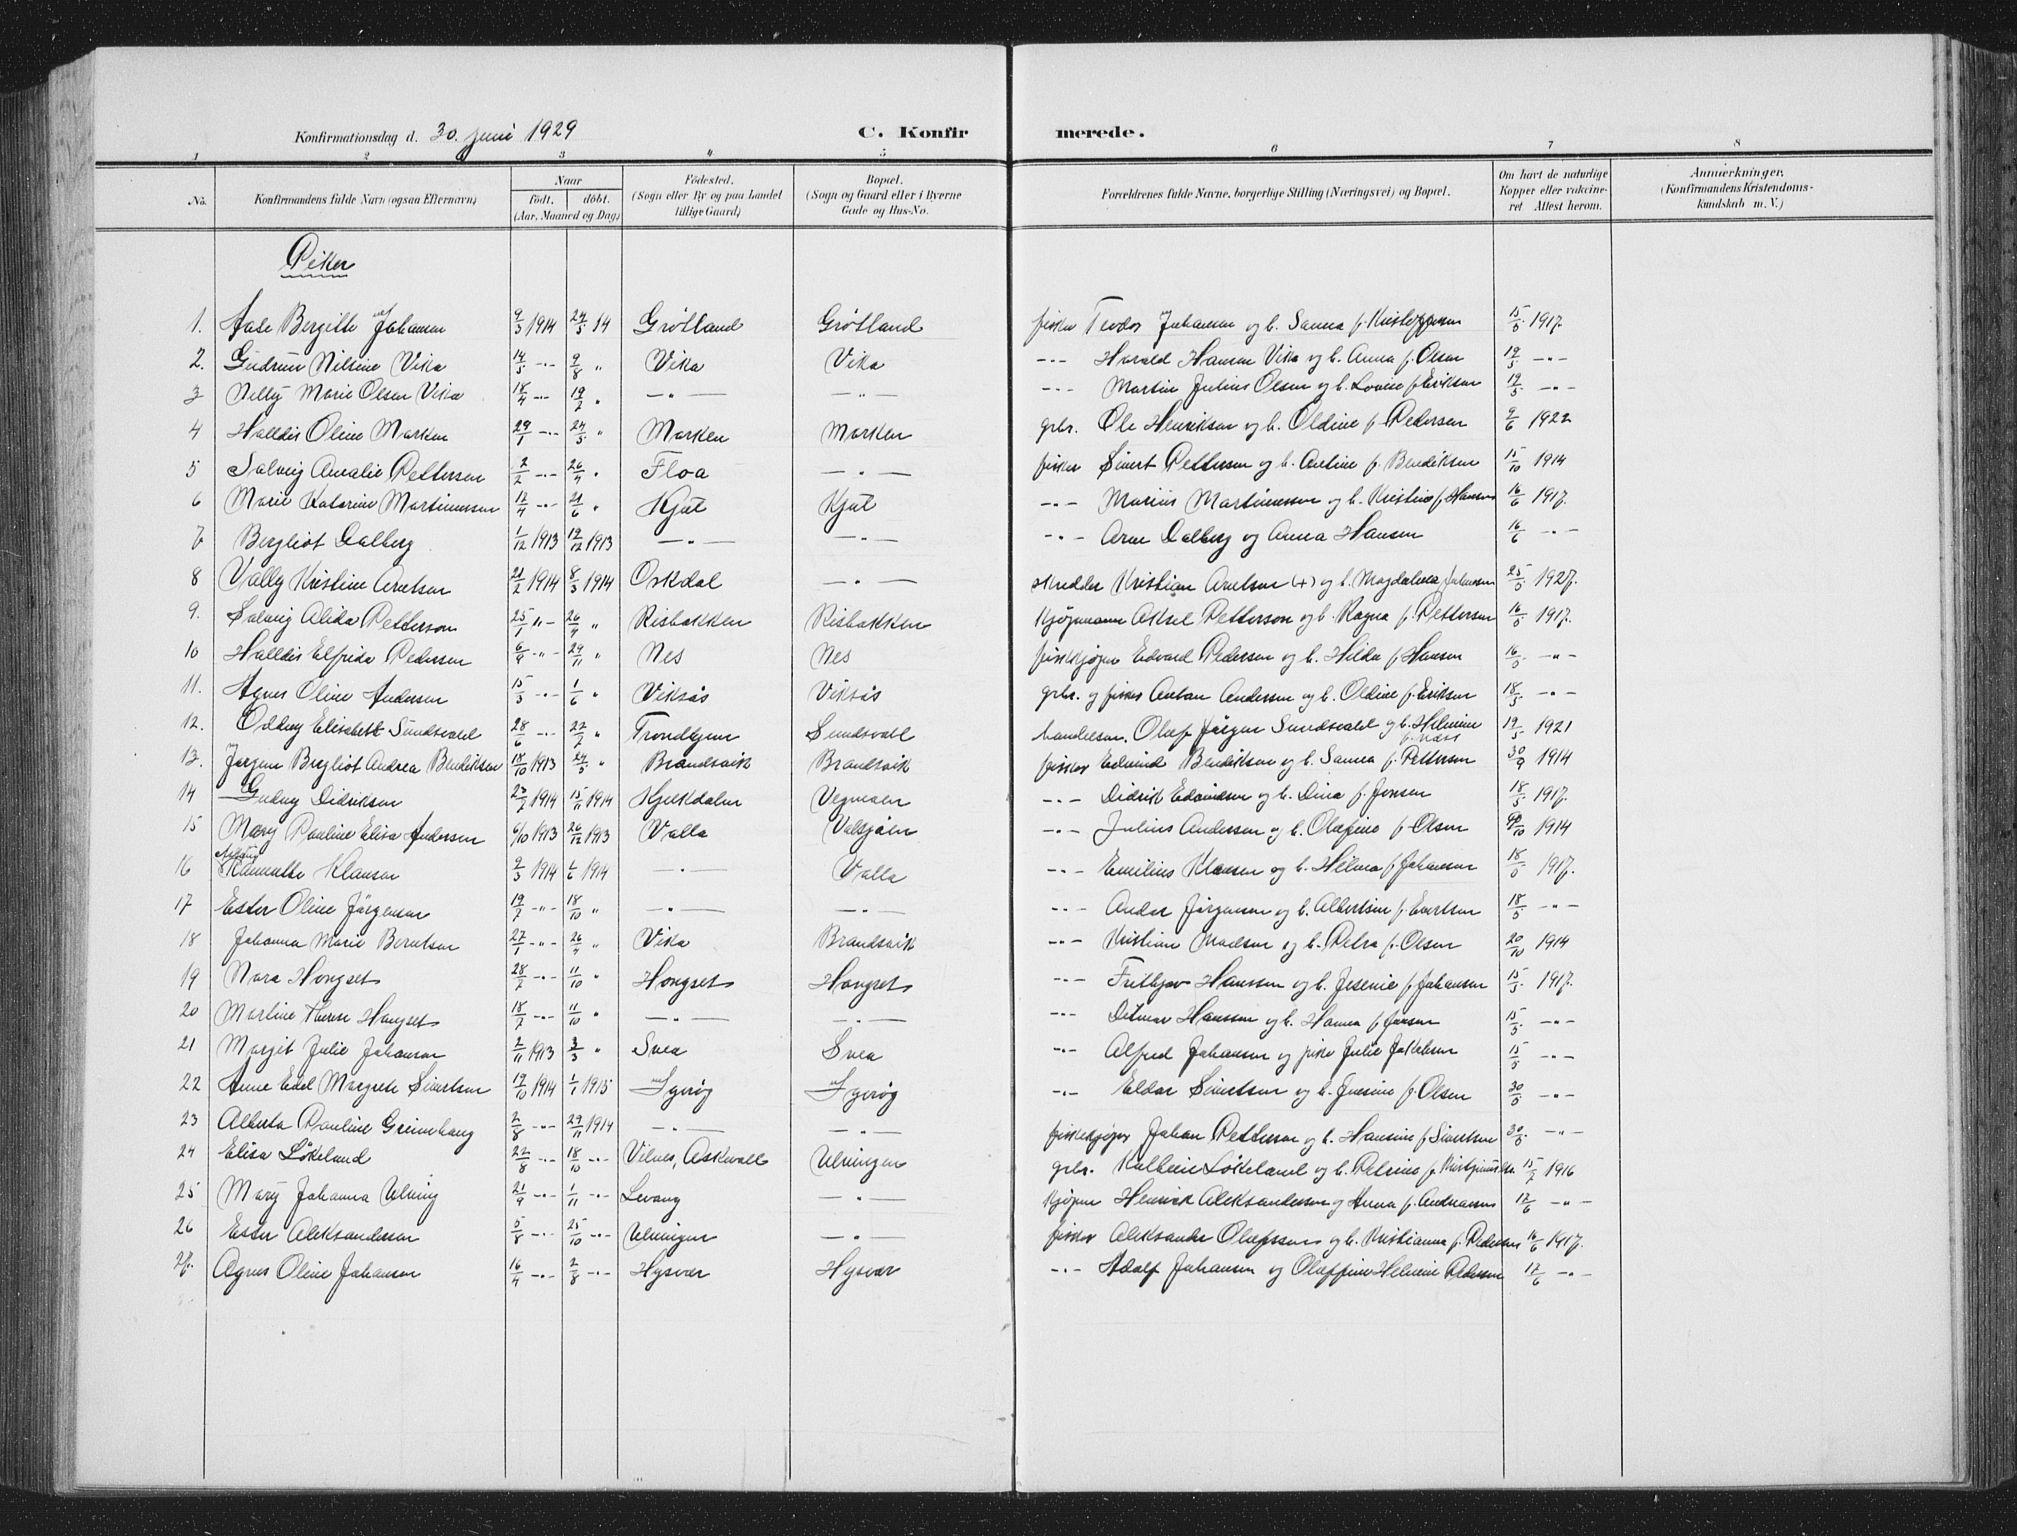 Konfirmationsdag d. 30. juni 1929 C. Konfirmerede.
1 2 3 4 5 6 7 8
No. Konfirmandens fulde Navn (ogsaa Efternavn) Naar födt. döbt. (Aar, Maaned og Dag) Födested. (Sogn eller By og paa Landet tillige Gaard) Bopæl. (Sogn og Gaard eller i Byerne Gade og Hus-No. Forældrenes fulde Navne, borgerlige Stilling (Næringsvei) og Bopæl. Om havt de naturlige Kopper eller vaccineret Attest herom. Anmerkninger. (Konfirmandens Kristendomskundskab m. V.)
Piker
1. Aase Bergitte Johansen 9/3 1914 24/5 14 Grötland Grötland fisker Teodor Johansen og h. Sanna f. Kristoffersen 15/5 1917.
2. Gudrun Nilsine Vika 14/5 -"- 9/8 " Vika Vika -"- Harald Hansen Vika og h. Anna f. Olsen 19/5 -"-
3 Nelly Marie Olsen Vika 18/4 -"- 19/7 " -"- -"- -"- Martin Julius Olsen og h. Lovise f. Eriksen 19/5 -"-
4 Halldis Oline Marken 29/1 -"- 24/5 " Marken Marken grbr. Ole Henriksen og h. Oldine f. Pedersen 9/6 1922
5 Solveig Amalie Pettersen 2/2 -"- 26/4 " Floa -"- fisker Sivert Pettersen og h. Antine f. Bendiksen 15/10 1914
6 Marie Katarine Martinussen 12/4 -"- 21/6 " Kjul Kjul -"- Marius Martinussen og h. Kristine f. Hansen 16/6 1917.
7 Bergliot Dalberg 1/12 1913 19/12 1913 -"- -"- -"- Arne Dalberg og Anna Hansen 16/6 -"-
8 Vally Kristine Arntsen 21/2 1914 8/3 1914 Oskdal -"- skredder Kristian Arntsen (+) og h. Magdalena Johansen 25/5 1927.
9. Solveig Alida Petterson 25/1 "- 26/4 " Risbakken Risbakken Kjøpmann Aksel Petterson og h. Ragna f. Pettersen 16/5 1917.
10 Halldis Elfrida Pedersen 6/9 -"- 29/11 " Nes Nes fiskekjøper Edvard Pedersen og h. Hilda f. Hansen 16/5 -"-
11. Agnes Oline Andersen 15/3 -"- 1/6 " Viksås Viksås grbr. og fisker Anton Andersen og h. Oldine f. Eriksen 18/5 -"-
12. Oddny Elisabett Sundsvald 28/6 -"- 27/7 " Trondhjem Sundsvoll handelsm. Olaf Jörgen Sundsvald og h. Helmine f. Næss 19/5 1921
13. Jörgine Bergliot Andrea Bendiksen 18/10 1913 24/5 " Brandsvik Brandsvik fisker Edmund Bendiksen og h. Sanna f. Pettersen 30/9 1914
14 Gudny Didriksen 23/7 1914 15/11 1914 Hjelkdalen Vegmoen -"- Didrik Edvindsen og h. Dina f. Jensen 18/5 1917.
15 Mary Pauline Elisa Andersen 6/10 1913 26/12 1913 Valla Valsjøen -"- Julius Andersen og h. Olafine f. Olsen 1914
16 Ragnvalde Klausen 9/3 1914 1/6 1914 -"- Valla -"- Emilius Klausen og h. Helma f. Johansen 18/5 1917.
17 Ester Oline Jörgensen 19/7 -"- 18/10 " -"- -"- -"- Andor Jörgensen og h. Albertine f. Evertsen 18/5 -"-
18 Johanna Marie Berntsen 27/1 -"- 26/4 " Vika Brandsvik -"- Kristian Madsen og h. Petra f. Olsen 20/10 1914
19 Nora Hongset 28/7 -"- 11/10 " Hongset Hongset -"- Fritjov Hanssen og h. Jesenie f. Johansen 15/5 1917.
20 Martine Therese Hongset 18/7 -"- 11/10 " -"- -"- -"- Ditmar Hanssen og h. Hanna f. Jensen 15/5 -"-
21 Margit Julie Johansen 2/11 1913 3/3 " Svea Svea -"- Alfred Johansen og pike Julie Jakobsen 15/5 -"-
22 Anne Edel Margrete Sivertsen 19/10 1914 1/1 1915 Igerøy Igerøy -"- Eldar Sivertsen og h. Jensine f. Olsen 30/5 -"-
23 Alberta Pauline Grønhaug 2/8 -"- 29/11 1914 -"- -"- fiskekjøper Johan Petterson og h. Hansine f. Sivertsen 30/5 -"-
24 Elisa Løkeland 22/8 -"- 18/10 -"- Vilnes, Askvoll Ulvingen grbr. Kolbein Løkeland og h. Petrine f. 15/7 1916
25 Mary Johanna Ulving 21/9 -"- 1/11 -"- Levang -"- Kjøpm Henrik Aleksandersen og Anna f. Andreassen 17/6 -"-
26 Ester Aleksandersen 5/8 -"- 25/10 -"- Ulvingen -"- fisker Aleksander Olafssen og h. Kristianna f. Pedersen 16/6 1917.
27. Agnes Oline Johansen 16/4 -"- 2/8 -"- Hysvær Hysvær -"- Adolf Johansen og Olaffine Helmine Pedersen 17/6 -"-